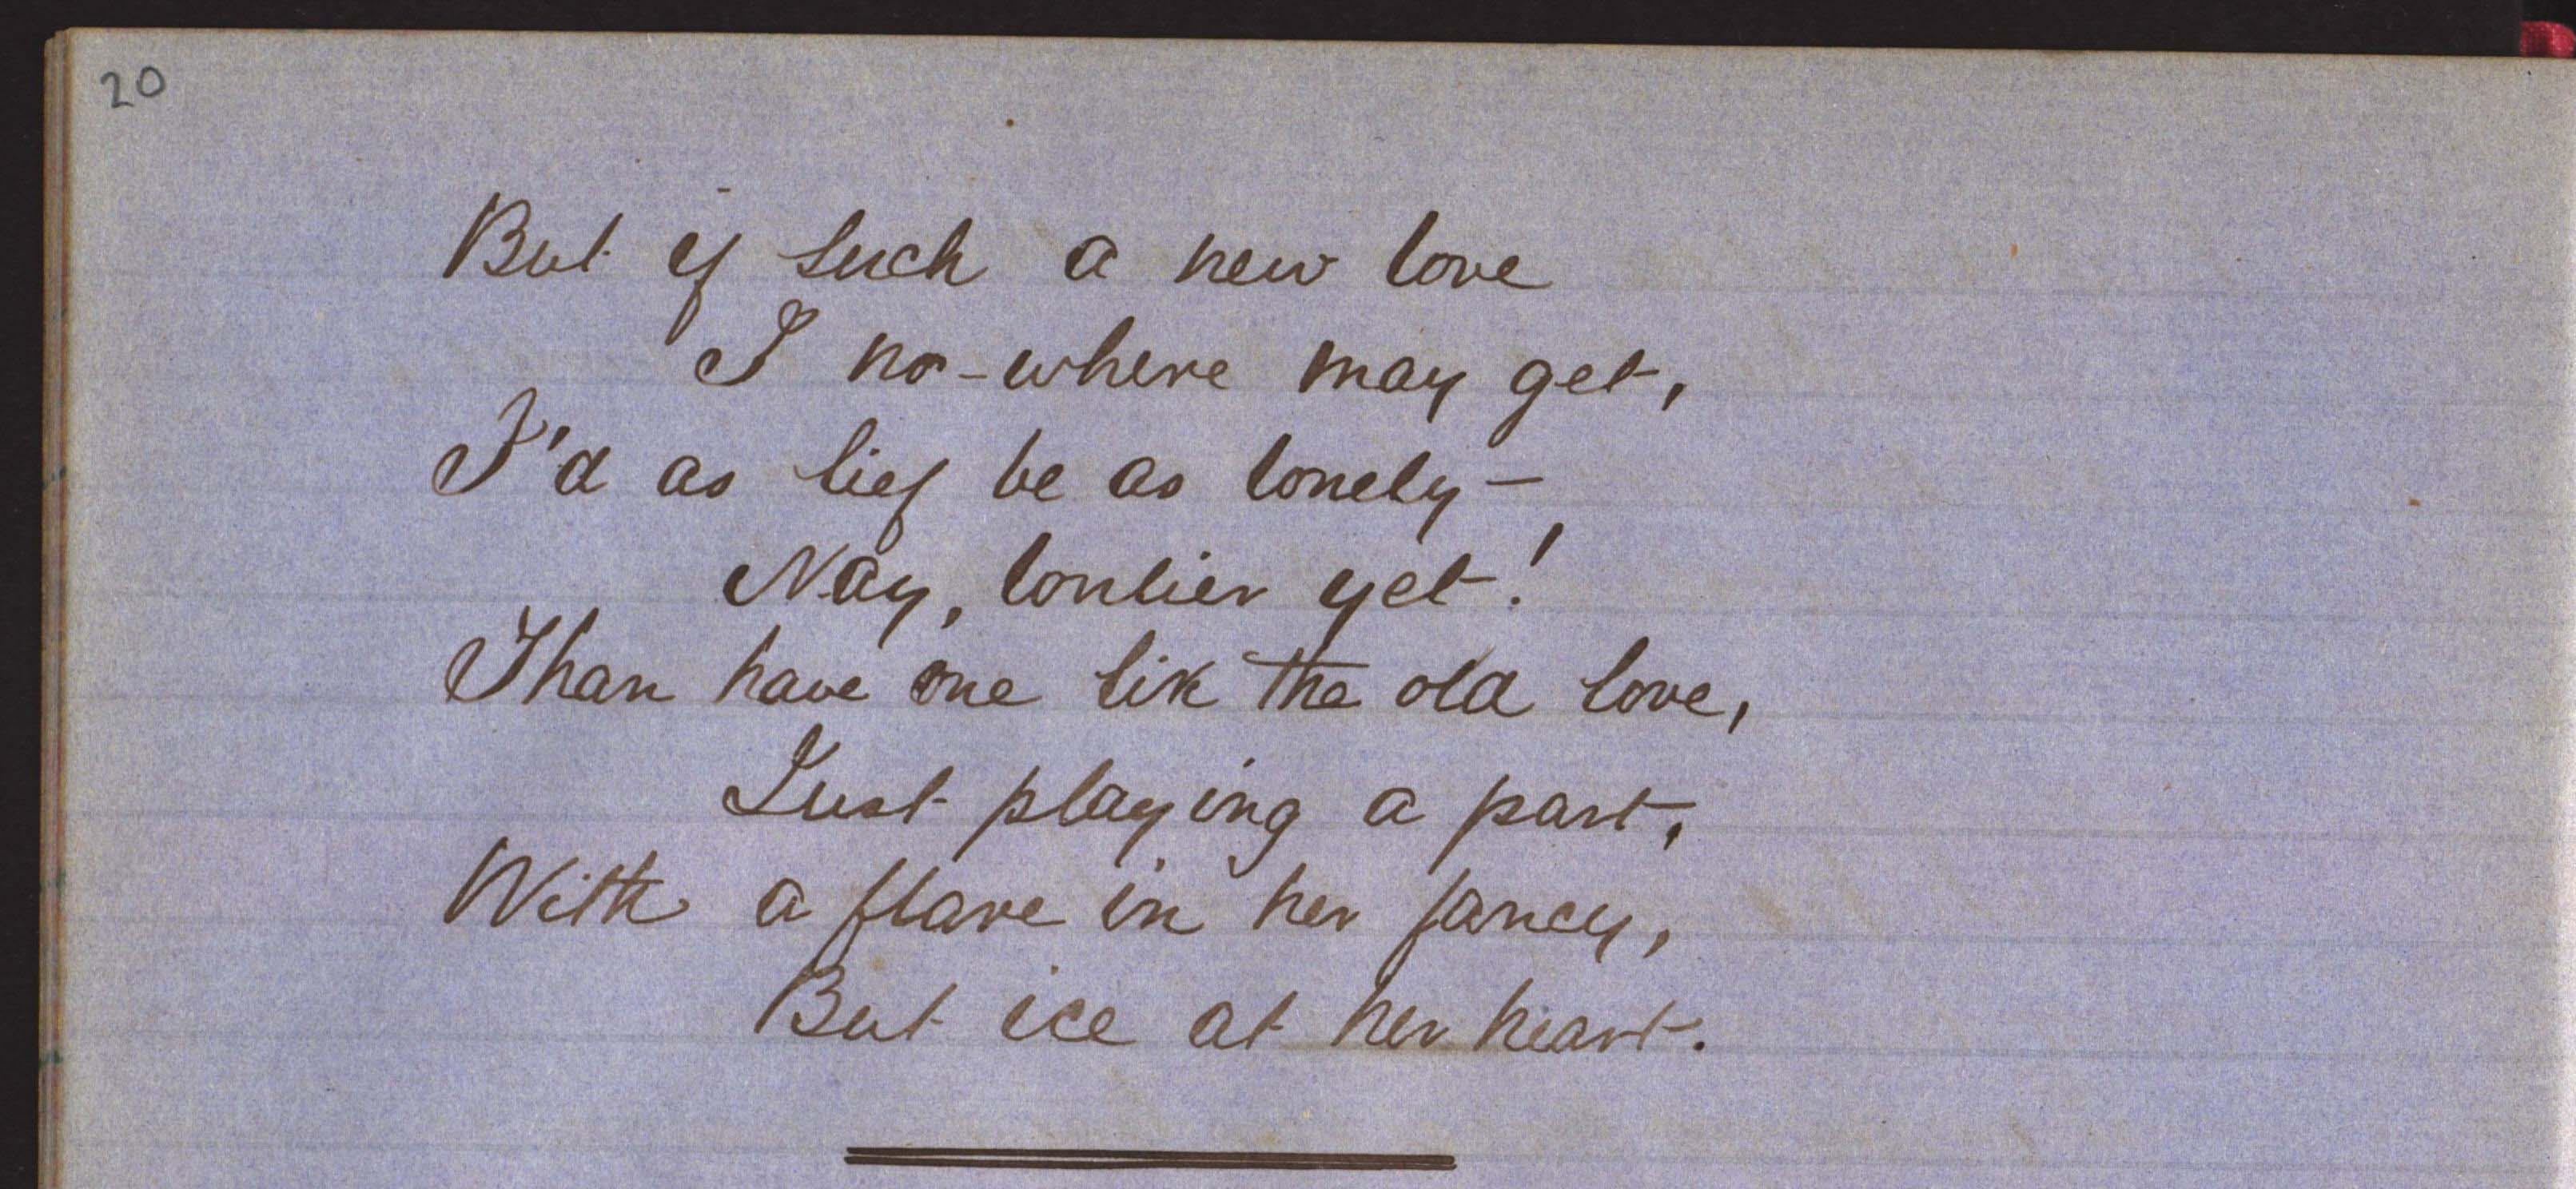 20
But if such a new love
I no-where may get,
I'd as lief be as lonely —
Nay, lonlier yet!
Than have one lik the old love,
Just playing a part,
With a flare in her fancy,
But ice at her heart.